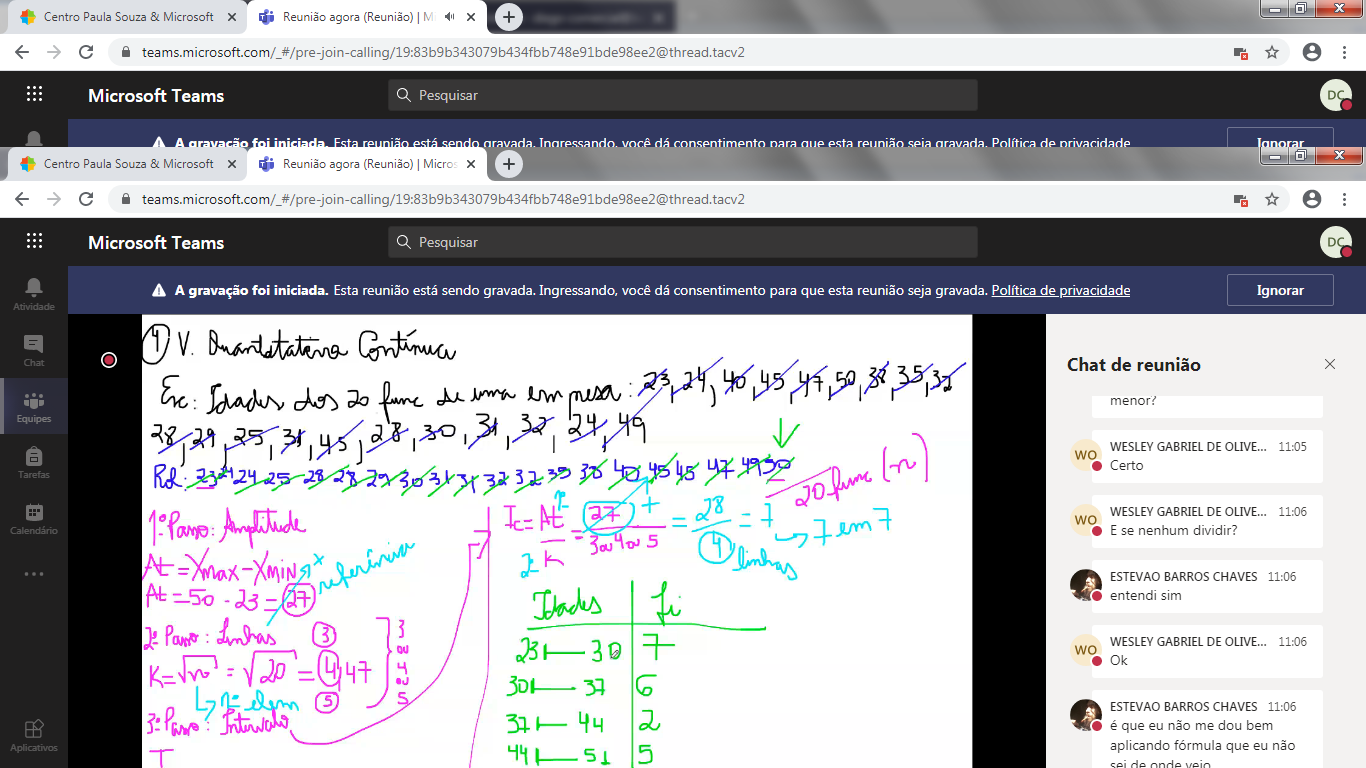 Centro Paula Souza & Microsoft
Reunião agora (Reunião) | Mi
teams.microsoft.com/_#/pre-join-calling/19:83b9b343079b434fbb748e91bde98ee2@thread.tacv2
Microsoft Teams
Pesquisar
DC
A gravação foi iniciada. Esta reunião está sendo gravada. Ingressando, você dá consentimento para que esta reunião seja gravada. Política de privacidade
Ignorar
Centro Paula Souza & Microsoft
Reunião agora (Reunião) | Micros
teams.microsoft.com/_#/pre-join-calling/19:83b9b343079b434fbb748e91bde98ee2@thread.tacv2
Microsoft Teams
Pesquisar
DC
A gravação foi iniciada. Esta reunião está sendo gravada. Ingressando, você dá consentimento para que esta reunião seja gravada. Política de privacidade
Ignorar
Atividade
Chat
Equipes
Tarefas
Calendário
Aplicativos
4 V. Quantitativa Contínua
Ex: Idades dos 20 func de uma empresa: 23, 24, 40, 45, 47, 50, 38, 35, 32
28, 29, 25, 31, 45, 28, 30, 31, 32, 24, 49
Rol: 23 24 24 25 28 28 29 30 31 31 32 32 35 38 40 45 45 47 49 50
20 func (n)
1º Passo: Amplitude
At = Xmax - Xmin
At = 50 - 23 = 27
referência
2º Passo: Linhas
K = √n = √20 = 4,47
3 ou 4 ou 5
nº elem
3º Passo: Intervalo
Ic = At/K = 27/3 ou 4 ou 5 = 28/4 = 7
7 em 7
linhas
Idades fi
23 |— 30 7
30 |— 37 6
37 |— 44 2
44 |— 51 5
Chat de reunião
menor?
WESLEY GABRIEL DE OLIVE... 11:05
Certo
WESLEY GABRIEL DE OLIVE... 11:06
E se nenhum dividir?
ESTEVAO BARROS CHAVES 11:06
entendi sim
WESLEY GABRIEL DE OLIVE... 11:06
Ok
ESTEVAO BARROS CHAVES 11:06
é que eu não me dou bem
aplicando fórmula que eu não
sei de onde veio